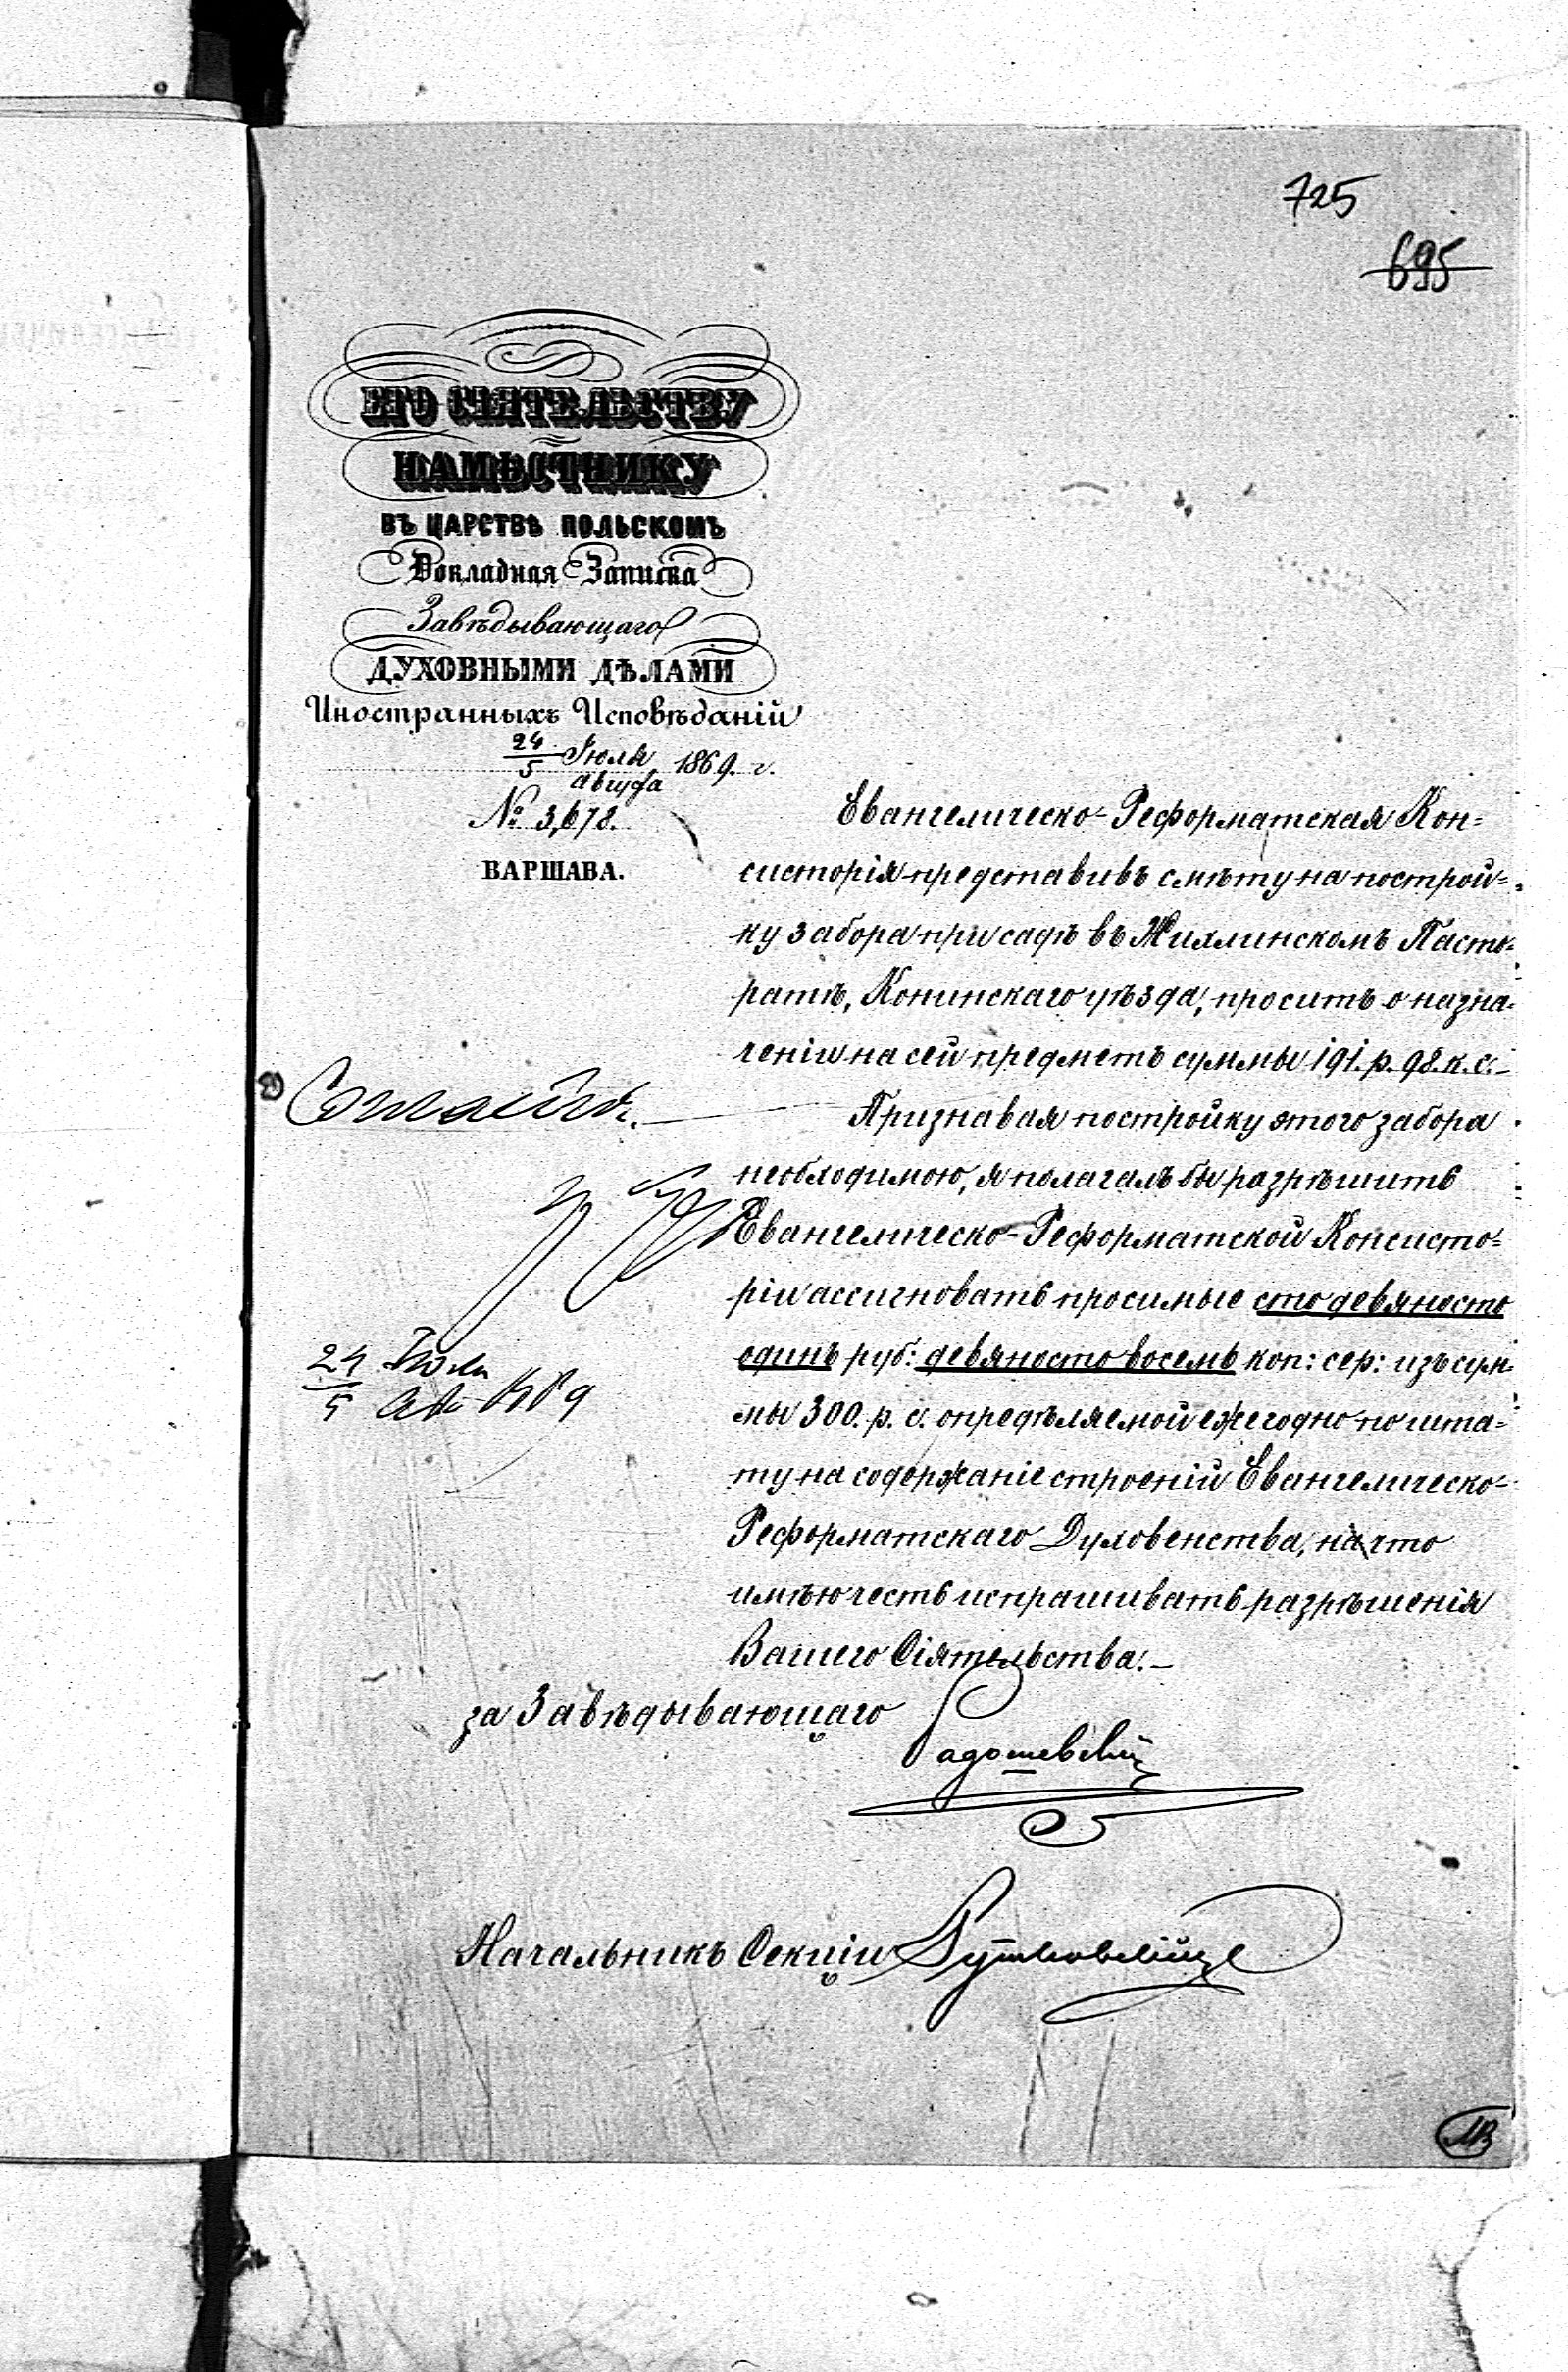 725
695
ЕГО СІЯТЕЛЬСТВУ
НАМѢСТНИКУ
ВЪ ЦАРСТВѢ ПОЛЬСКОМЪ
Докладная Записка
Завѣдывающаго
ДУХОВНЫМИ ДѢЛАМИ
Иностранныхъ Исповѣданій
24 Іюля
5 Августа 1869. г.
№ 3,678.
ВАРШАВА.
Евангелическо-Реформатская Кон=
систорія представивъ смѣту на построй=
ку забора при садѣ въ Жихлинскомъ Пасто-
ратѣ, Конинскаго уѣзда, проситъ о назна-
ченіи на сей предметъ суммы 191. р. 98. к. с.-
Согласенъ.
Признавая постройку этого забора
необходимою, я полагалъ бы разрѣшить
Евангелическо-Реформатской Консисто=
ріи ассигновать просимые сто девяносто
одинъ руб: девяносто восемь коп: сер: изъ сум-
24 Іюля
5 Авг. 1869
мы 300. р. с. опредѣляемой ежегодно по шта=
ту на содержаніе строеній Евангелическо-
Реформатскаго Духовенства, на что
имѣю честь испрашивать разрѣшенія
Вашего Сіятельства.-
за Завѣдывающаго
Радошевскій
Начальникъ Секціи Рутковскій